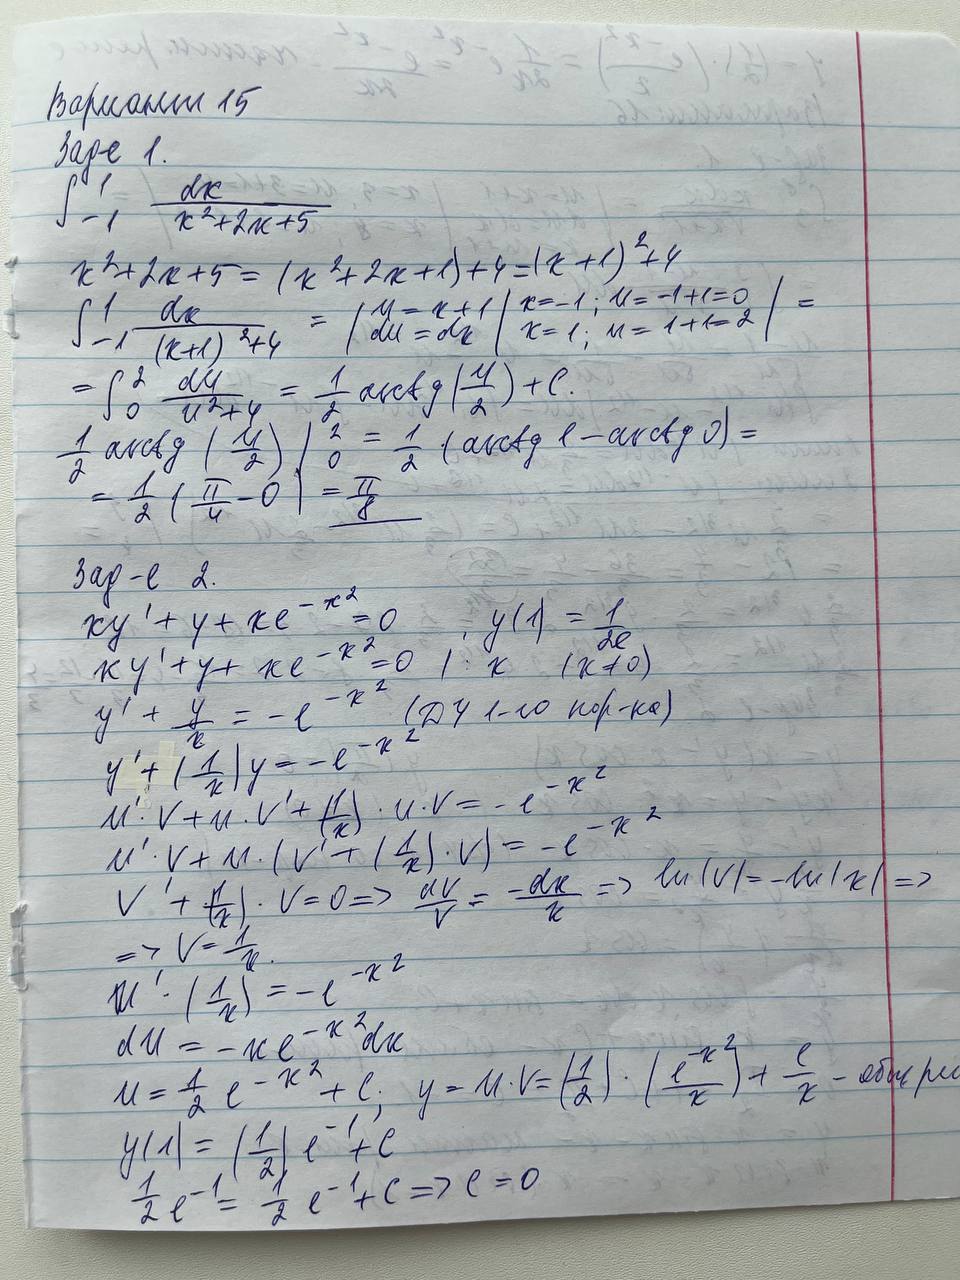 Вариант 15
Зад-е 1.
∫₋₁¹ dx / (x²+2x+5)
x²+2x+5 = (x²+2x+1)+4 = (x+1)²+4
∫₋₁¹ dx / ((x+1)²+4) = | u = x+1 du = dx | x=-1; u=-1+1=0 x=1; u=1+1=2 | =
= ∫₀² du / (u²+4) = 1/2 arctg (u/2) + C.
1/2 arctg (u/2) |₀² = 1/2 (arctg 1 - arctg 0) =
= 1/2 (π/4 - 0) = π/8
Зад-е 2.
xy' + y + xe^(-x²) = 0 , y(1) = 1/2e
xy' + y + xe^(-x²) = 0 | : x (x≠0)
y' + y/x = -e^(-x²) (ДУ 1-го пор-ка)
y' + (1/x) y = -e^(-x²)
u'·v + u·v' + (1/x)·u·v = -e^(-x²)
u'·v + u·(v' + (1/x)·v) = -e^(-x²)
v' + (1/x)·v = 0 => dv/v = -dx/x => ln|v| = -ln|x| =>
=> v = 1/x.
u'·(1/x) = -e^(-x²)
du = -xe^(-x²)dx
u = 1/2 e^(-x²) + C; y = u·v = (1/2)·(e^(-x²)/x) + C/x - общ реш
y(1) = (1/2) e⁻¹ + C
1/2 e⁻¹ = 1/2 e⁻¹ + C => C = 0